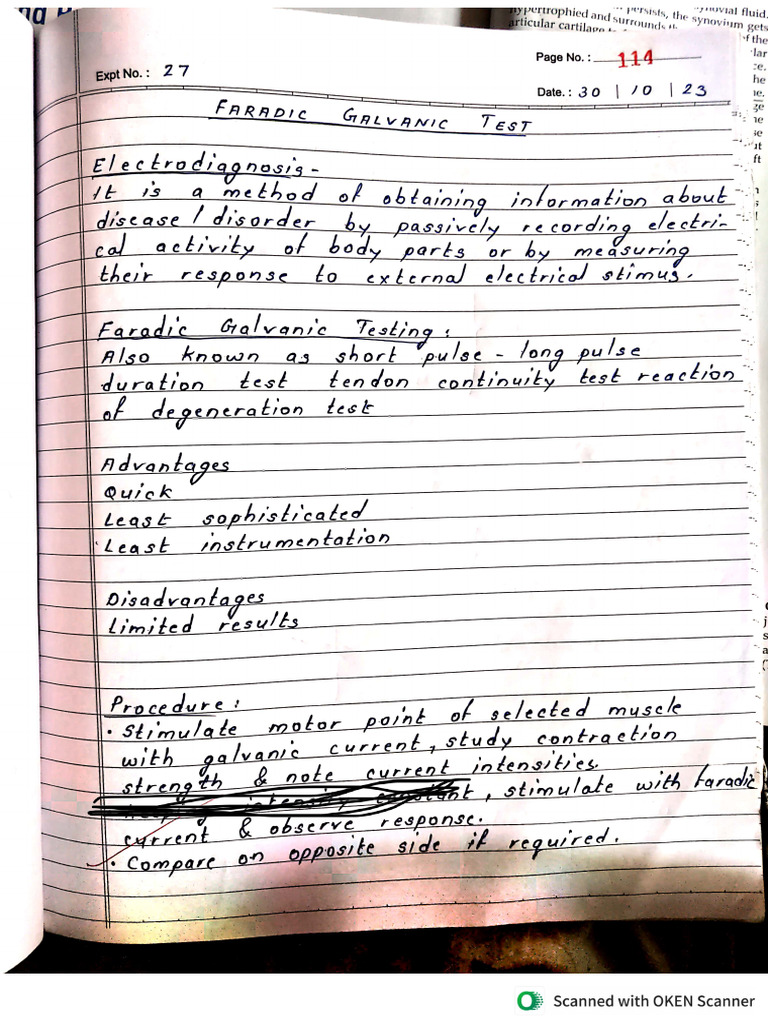 persists, the synovial fluid.
hypertrophied and surrounds
the synovium gets
articular cartilage
Expt No. : 27
Page No. : 114
Date. : 30 | 10 | 23
FARADIC GALVANIC TEST
Electrodiagnosis -
It is a method of obtaining information about
disease / disorder by passively recording electri-
cal activity of body parts or by measuring
their response to external electrical stimus.
Faradic Galvanic Testing :
Also known as short pulse - long pulse
duration test tendon continuity test reaction
of degeneration test
Advantages
Quick
Least sophisticated
Least instrumentation
Disadvantages
Limited results
Procedure :
• Stimulate motor point of selected muscle
with galvanic current, study contraction
strength & note current intensities.
, stimulate with faradic
current & observe response.
• Compare on opposite side if required.
Scanned with OKEN Scanner